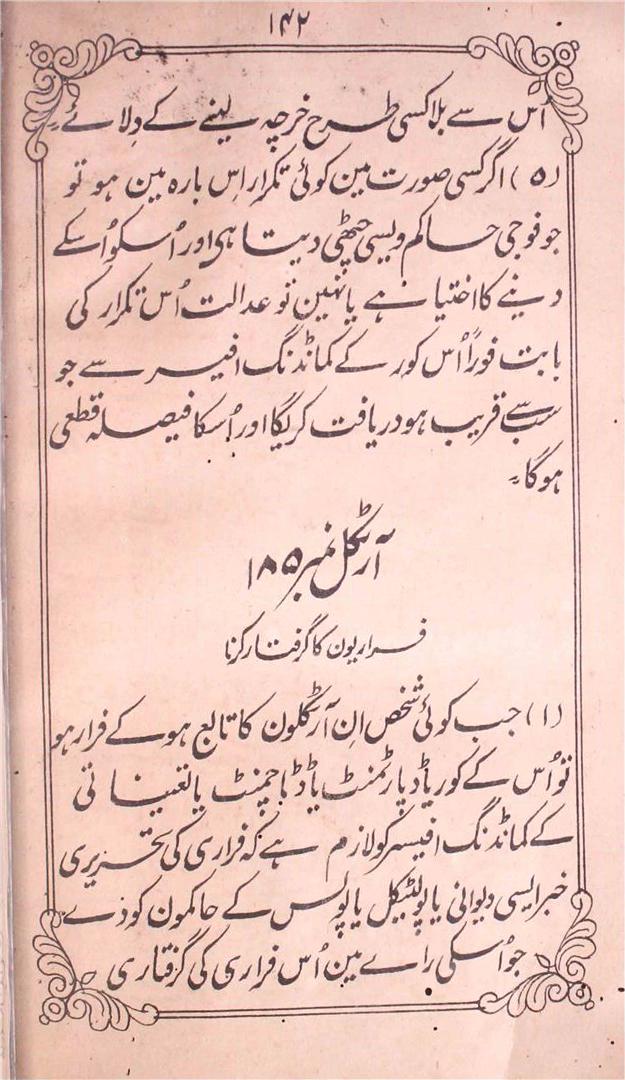 ۱۴۲
اُس سے بلا کسی طرح خرچہ لینے کے دِلائے۔
(۵) اگر کسی صورت مین کوئی تکرار اِس بارہ مین ہو تو
جو فوجی حاکم ویسی چٹھی دیتا ہی اور اُسکو اُسکے
دینے کا اختیار ہے یا نہین تو عدالت اُس تکرار کی
بابت فوراً اُس کور کے کمانڈنگ افیسر سے جو
سب سے قریب ہو دریافت کریگا اور اُسکا فیصلہ قطعی
ہوگا۔
آرٹکل نمبر ۱۸۵
فراریون کا گرفتار کرنا
(۱) جب کوئی شخص اِن آرٹکلون کا تابع ہو کے فرار ہو
تو اُس کے کور یا ڈپارٹمنٹ یا ڈٹاچمنٹ یا تعیناتی
کے کمانڈنگ افیسر کو لازم ہے کہ فراری کی تحریری
خبر ایسی دیوانی یا پولٹیکل یا پولس کے حاکمون کو دے
جو اُسکی راے مین اُس فراری کی گرفتاری